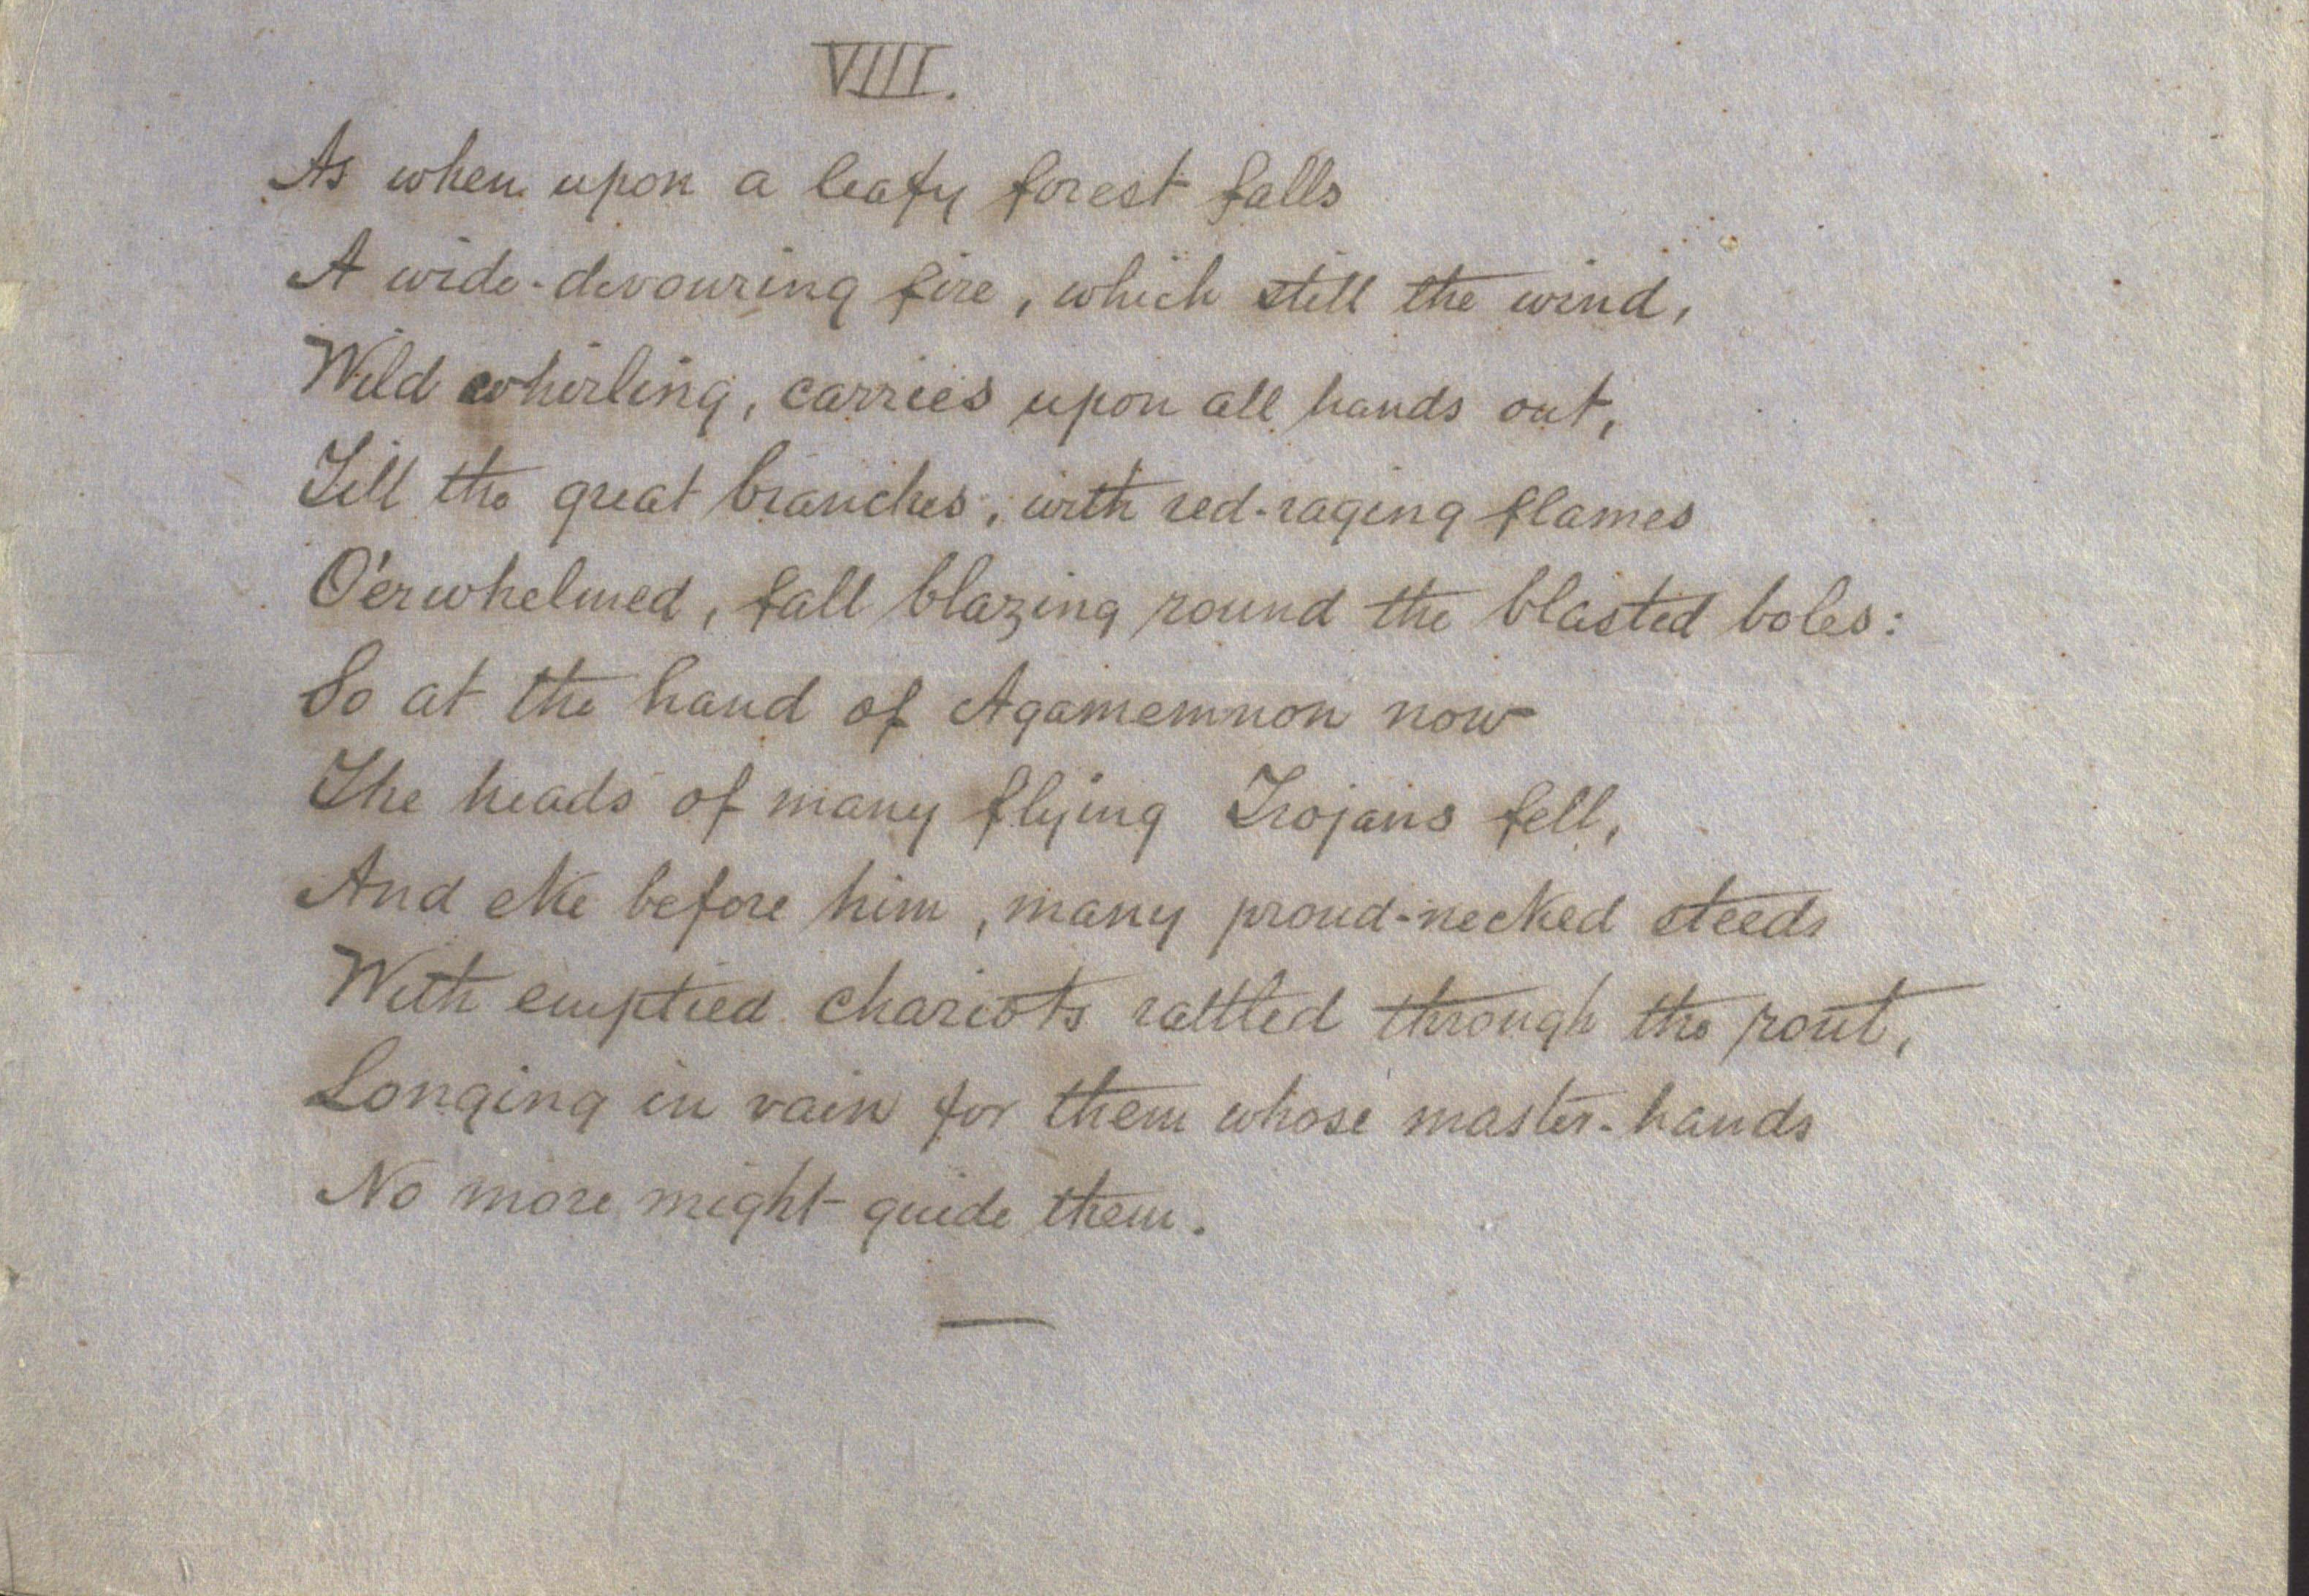 VIII.
As when upon a leafy forest falls
A wide-devouring fire, which still the wind,
Wild whirling, carries upon all hands out,
Till the great branches, with red-raging flames
O'erwhelmed, fall blazing round the blasted boles:
So at the hand of Agamemnon now
The heads of many flying Trojans fell,
And eke before him, many proud-necked steeds
With emptied chariots rattled through the rout,
Longing in vain for them whose master-hands
No more might guide them.